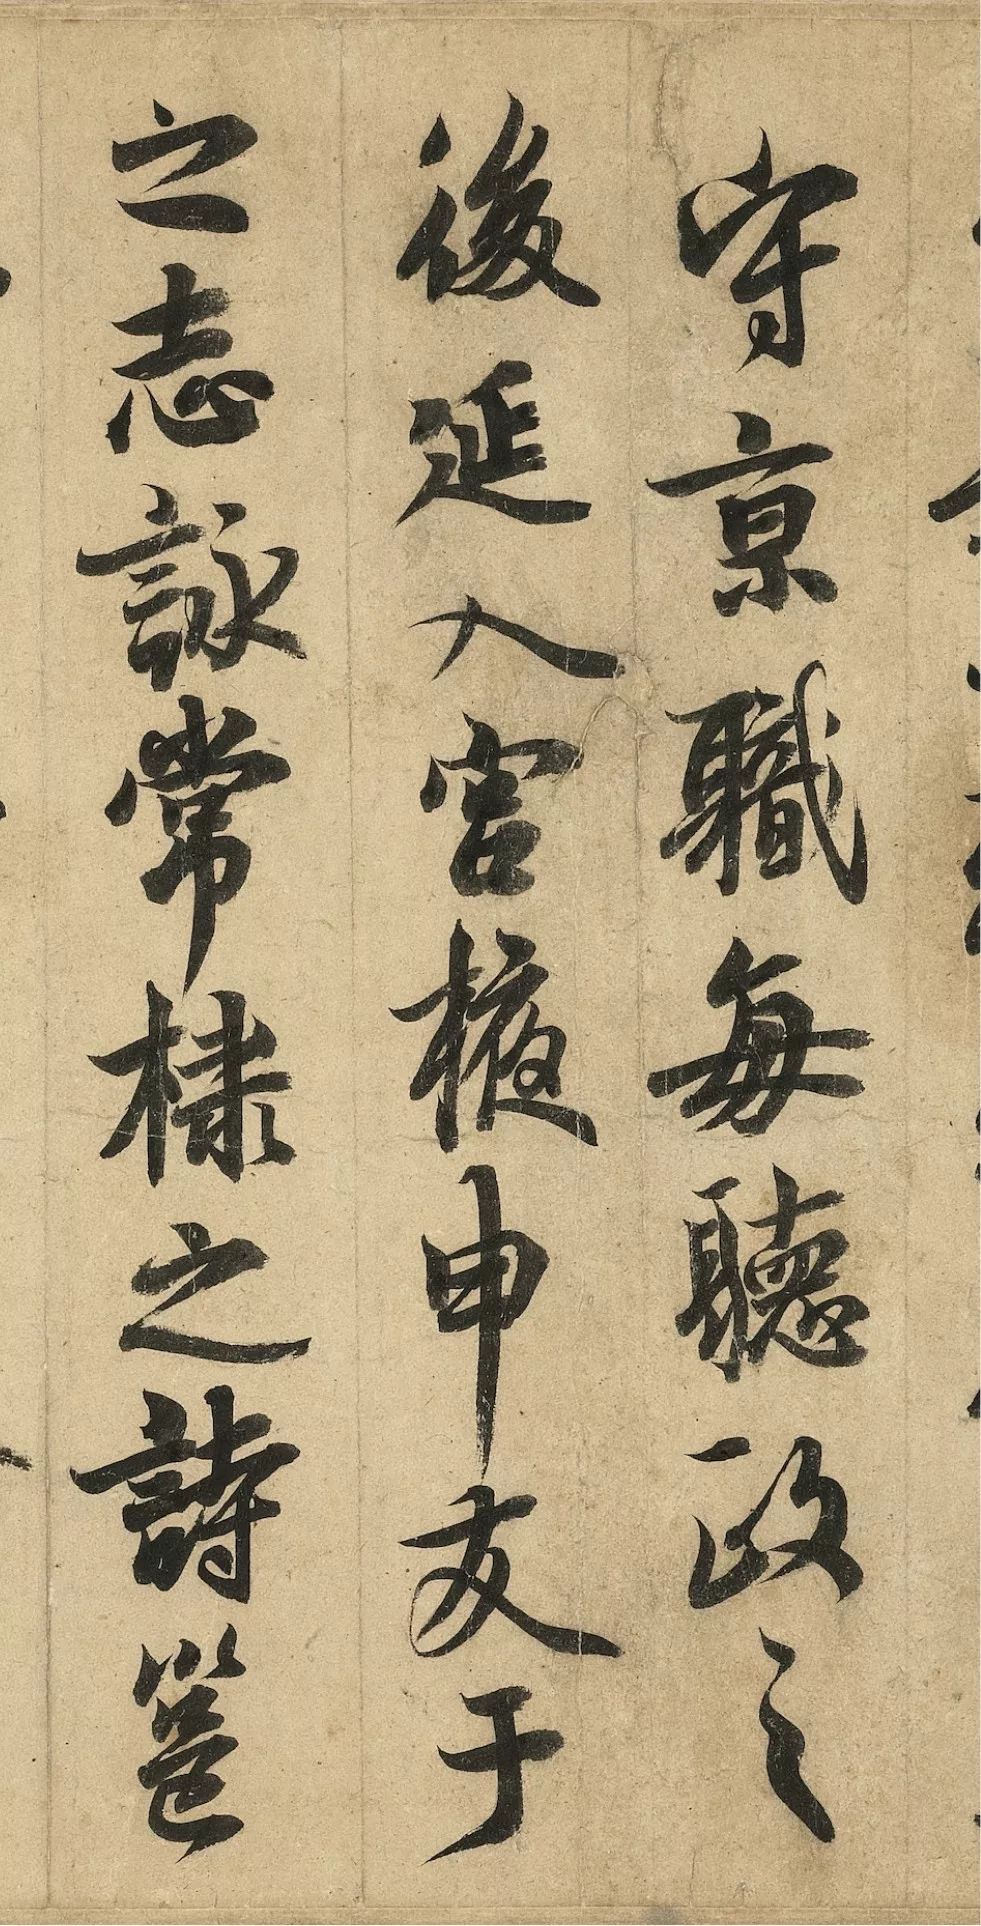 守京職每聽政之
後延入宮掖申友于
之志詠常棣之詩邕